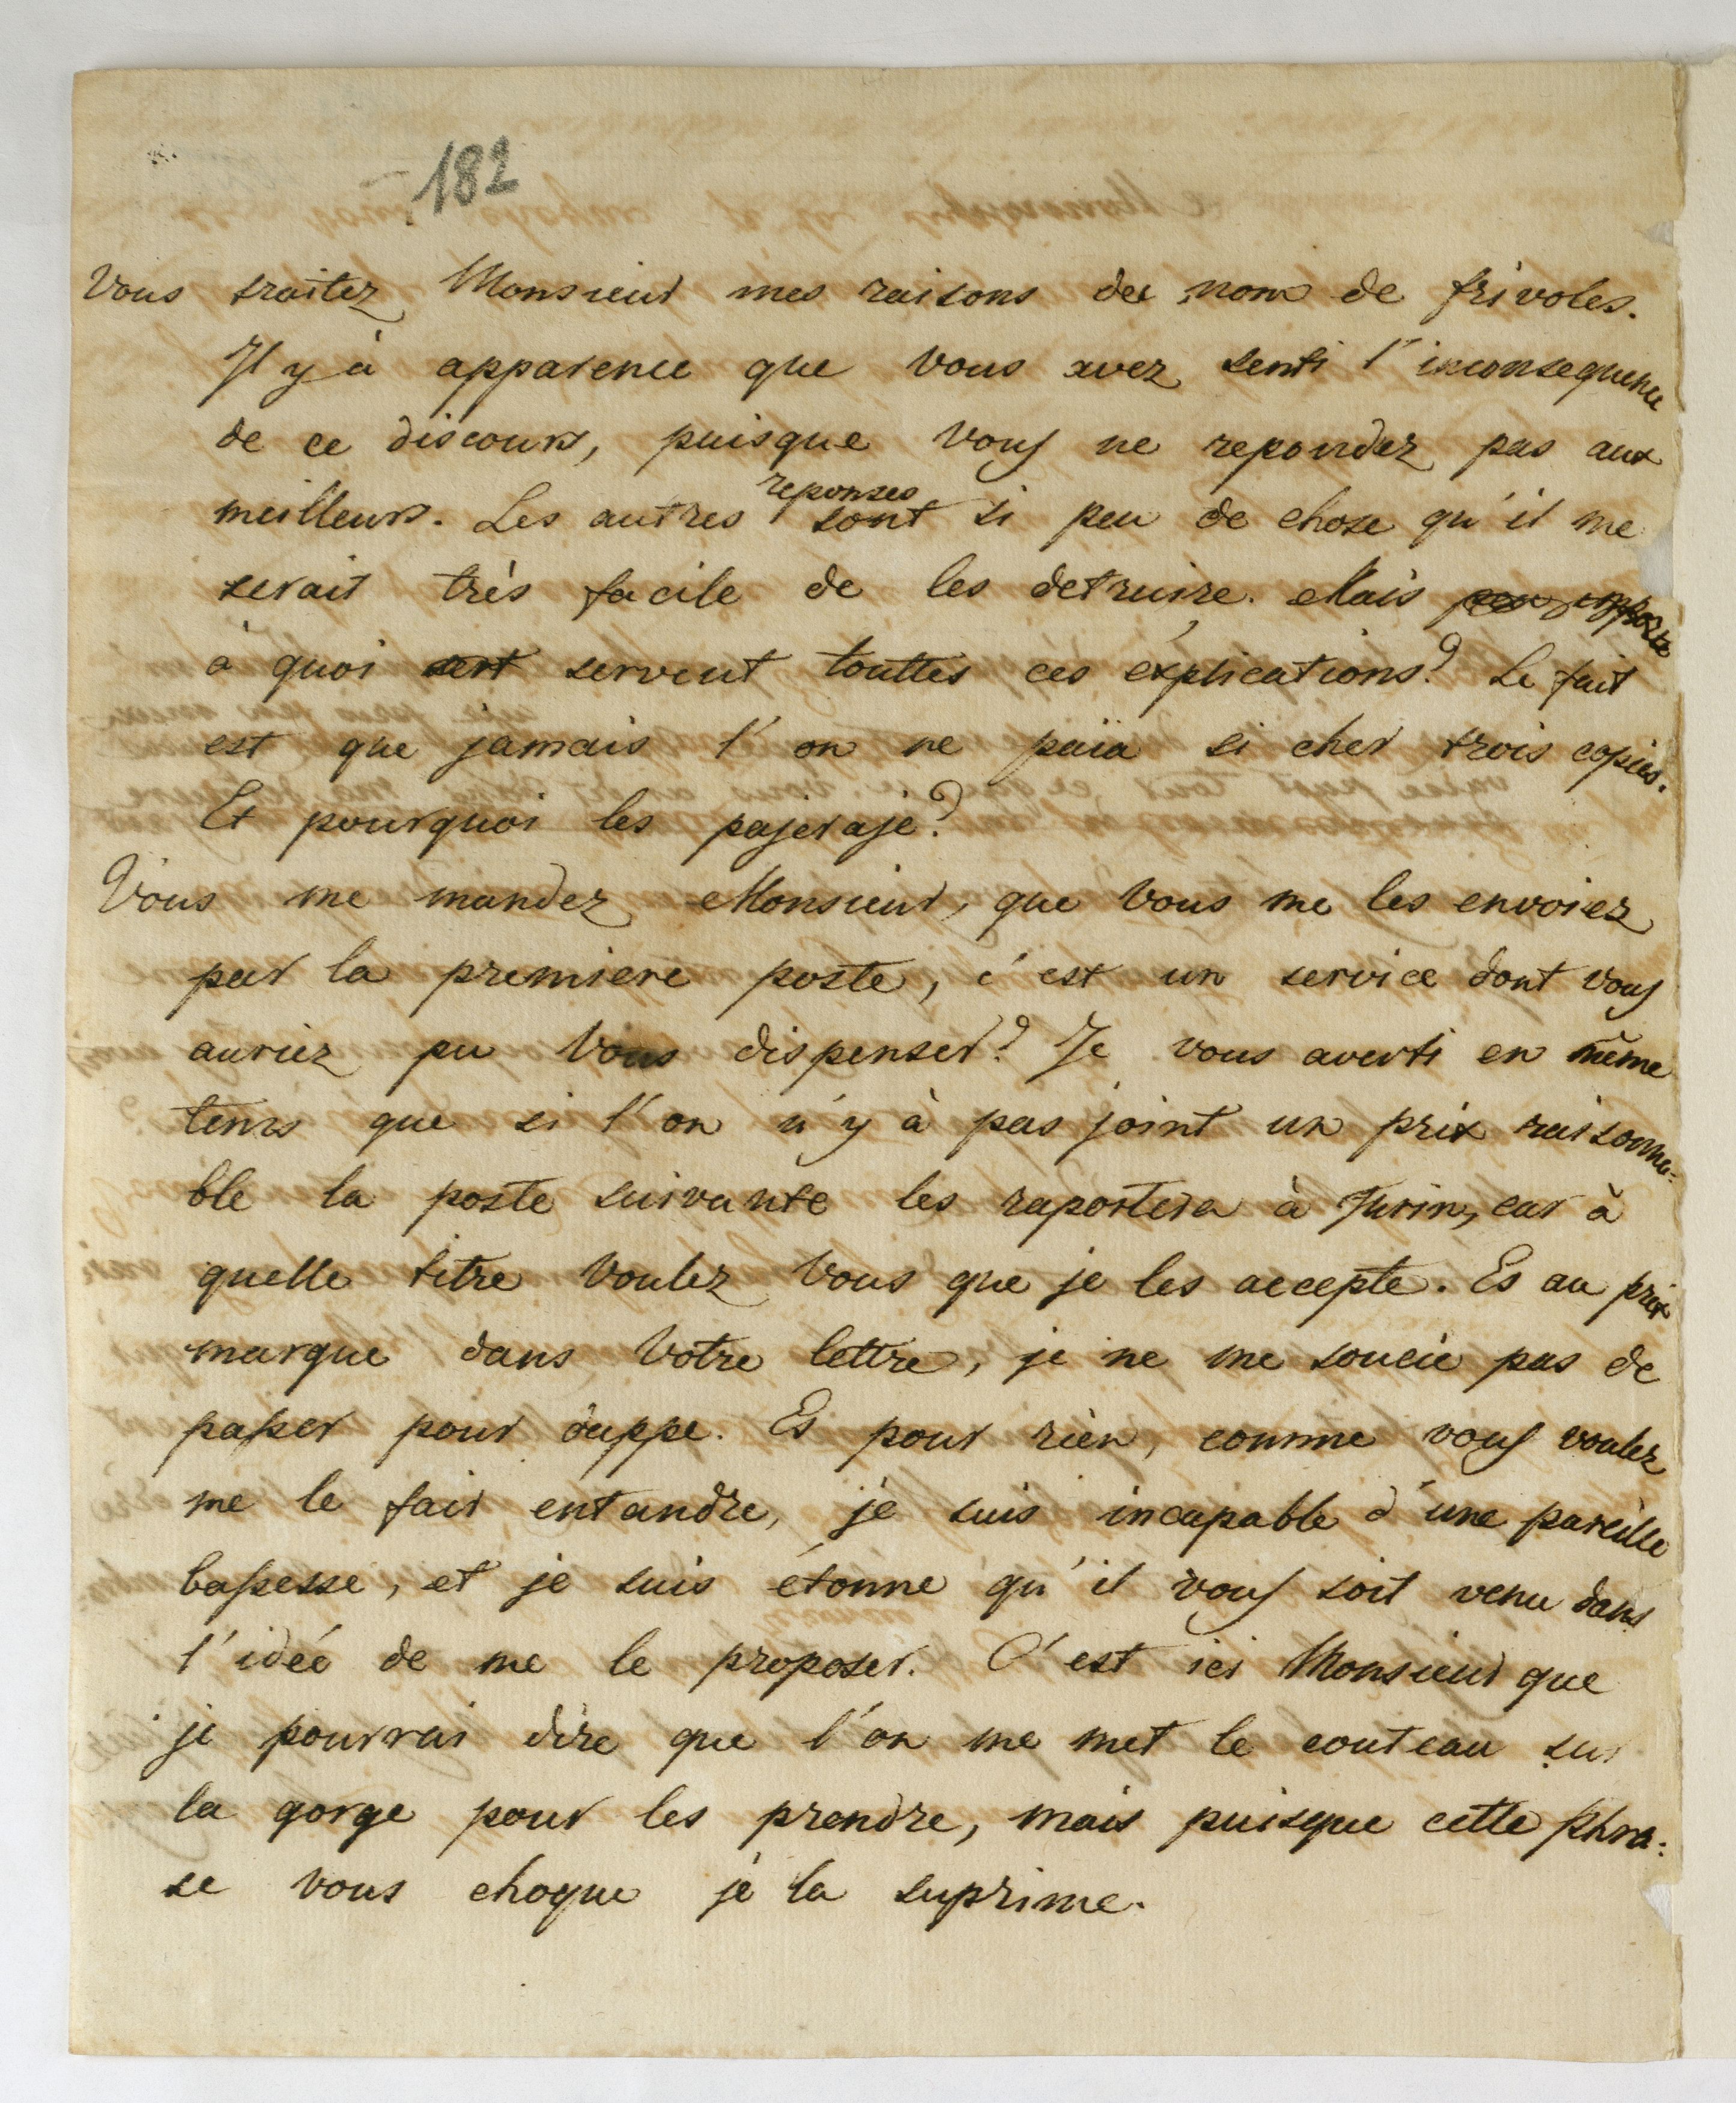 182
Vous traitez Monsieur mes raisons des nom de frivoles.
Il y à apparence que vous avez senti l'inconsequence
de ce discours, puisque vous ne repondez pas aux
meilleurs. Les autres reponses sont si peu de chose qu'il me
serait très facile de les detruire. Mais peu importe
à quoi sert servent touttes ces éxplications? Le fait
est que jamais l'on ne païa si cher trois copies.
Et pourquoi les pajeraje?
Vous me mandez Monsieur, que vous me les envoiez
par la premiere poste, c'est un service dont vous
auriez pu vous dispenser? Je vous averti en même
tems que si l'on n'y à pas joint un prix raisonna=
ble la poste suivante les raportera à Turin, car à
quelle titre voulez vous que je les accepte. Es au prix
marque dans votre lettre, je ne me soucie pas de
passer pour duppe. Es pour rien, comme vous voulez
me le fair entandre, je suis incapable d'une pareille
bassesse, et je suis étonne qu'il vous soit venu dans
l'idée de me le proposer. C'est ici Monsieur que
je pourrai dire que l'on me met le couteau sur
la gorge pour les prendre, mais puisque cette phra:
se vous choque je la suprime.